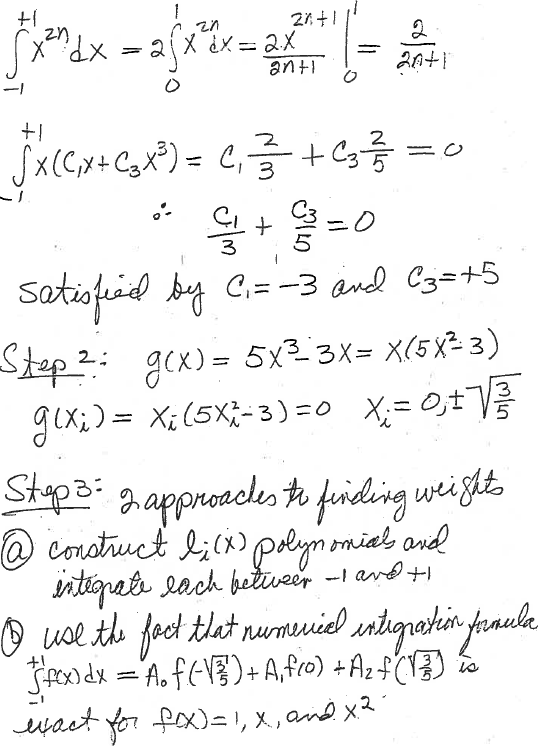 ∫_{-1}^{+1} x^{2n} dx = 2∫_0^1 x^{2n} dx = 2x^{2n+1}/(2n+1) |_0^1 = 2/(2n+1)
∫_{-1}^{+1} x(C₁x + C₃x³) = C₁ 2/3 + C₃ 2/5 = 0
∴ C₁/3 + C₃/5 = 0
satisfied by C₁ = -3 and C₃ = +5
Step 2: g(x) = 5x³ - 3x = x(5x² - 3)
g(xᵢ) = xᵢ(5xᵢ² - 3) = 0 xᵢ = 0, ±√(3/5)
Step 3: 2 approaches to finding weights
ⓐ construct lᵢ(x) polynomials and
integrate each between -1 and +1
ⓑ use the fact that numerical integration formula
∫_{-1}^{+1} f(x) dx = A₀ f(-√(3/5)) + A₁ f(0) + A₂ f(√(3/5)) is
exact for f(x) = 1, x, and x²